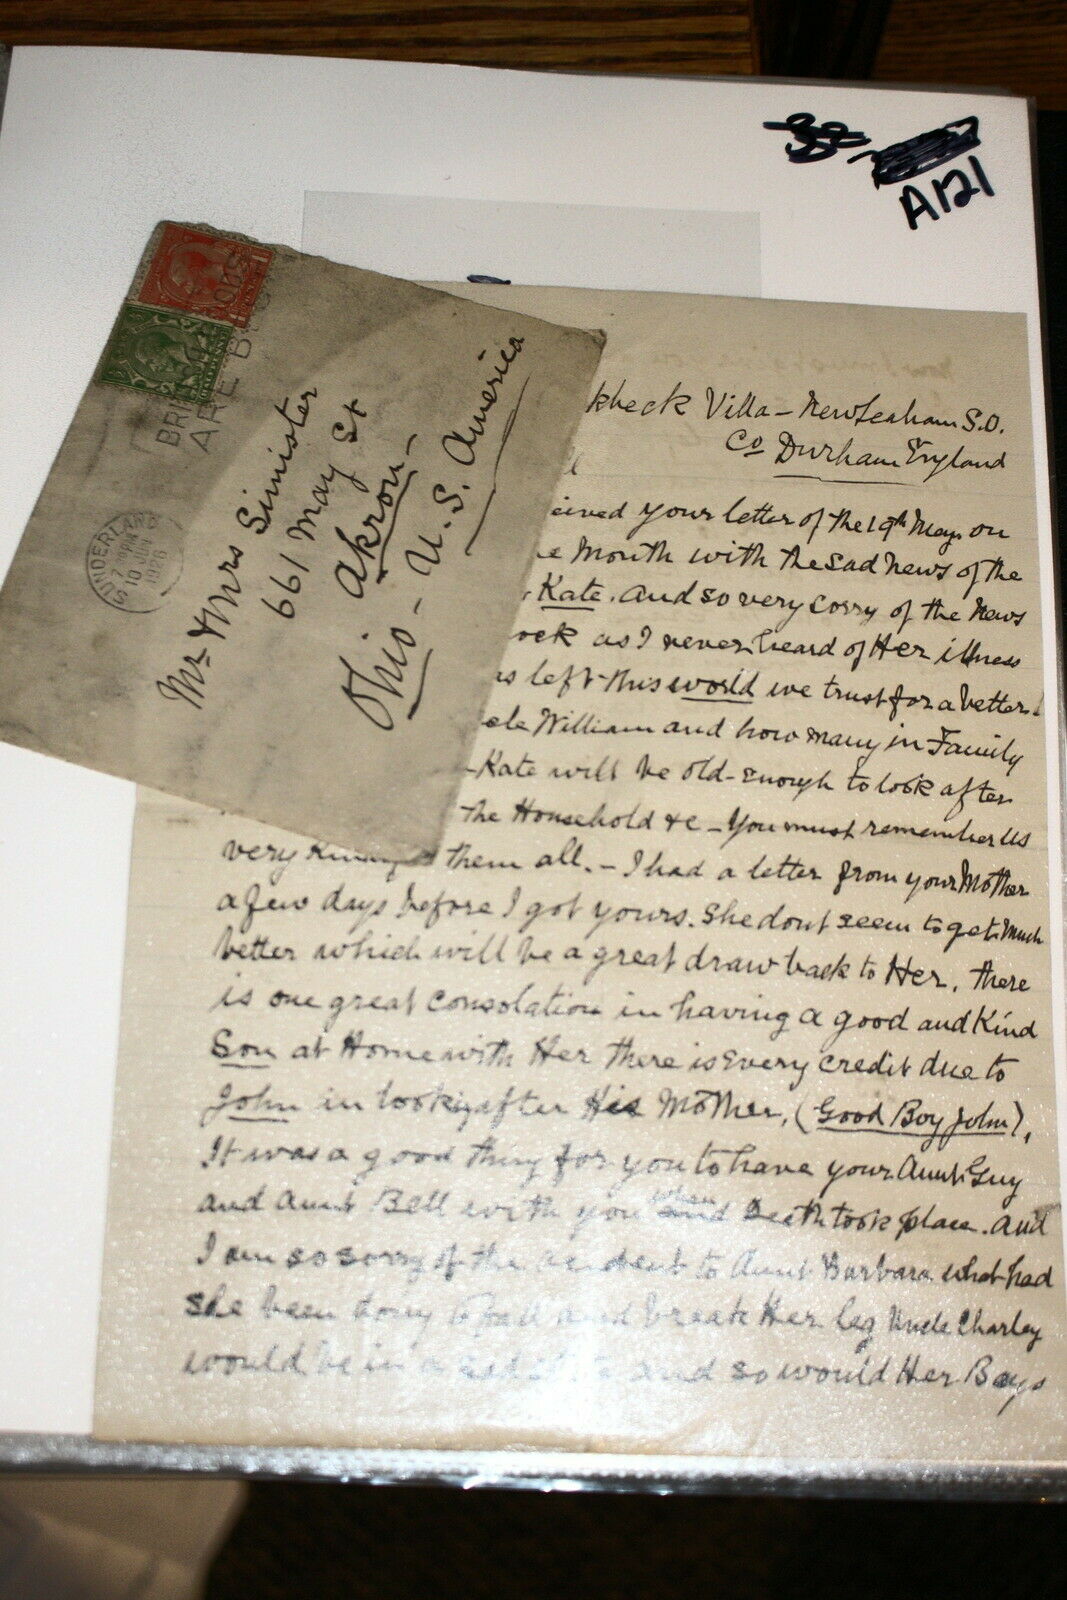 A121
BRIT
ARE B
SUNDERLAND
7 PM
10 JUN
1926
Mr & Mrs Simister
661 May St
Akron -
Ohio - U.S. America
kbeck Villa - New Seaham S.O.
Co Durham England
eived your letter of the 19th May on
e Month with the sad news of the
Kate. And so very sorry of the news
ock as I never heard of Her illness
as left this world we trust for a better
cle William and how many in Family
Kate will be old-enough to look after
the Household &c - You must remember us
very kindly to them all. - I had a letter from your Mother
a few days before I got yours. She dont seem to get much
better which will be a great draw back to Her, there
is one great consolation in having a good and kind
Son at Home with Her there is Every credit due to
John in looking after His Mother, (Good Boy John),
It was a good thing for you to have your Aunt Guy
and Aunt Bell with you when death took place. And
I am so sorry of the accident to Aunt Barbara what had
she been doing to fall and break Her leg Uncle Charley
would be in a sad state and so would Her Boys